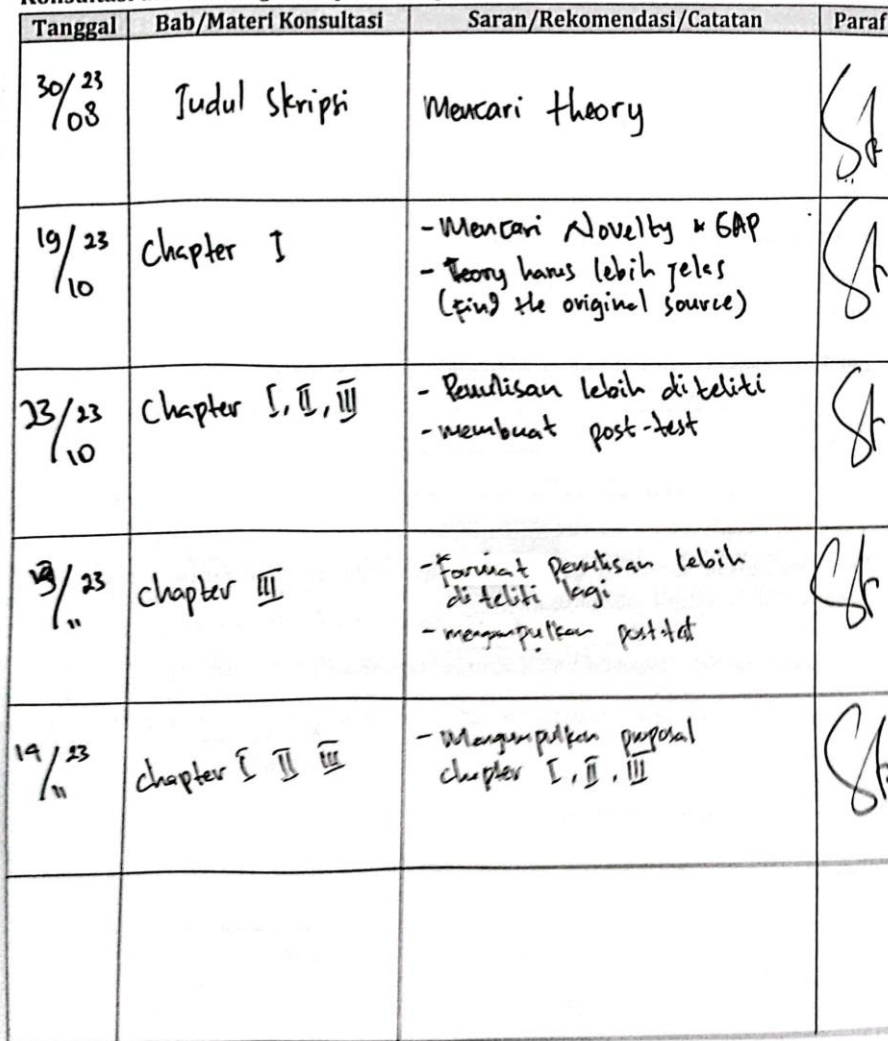 Tanggal Bab/Materi Konsultasi Saran/Rekomendasi/Catatan Paraf
30/23
/08
Judul Skripsi
Mencari theory
19/23
/10
Chapter I
- Mencari Novelty & GAP
- Teory harus lebih jelas
(find the original source)
23/23
/10
Chapter I, II, III
- Penulisan lebih di teliti
- membuat post-test
/23
/11
chapter III
- Format Penulisan lebih
di teliti lagi
- mengumpulkan post-test
/23
/11
chapter I II III
- Mengumpulkan proposal
chapter I, II, III